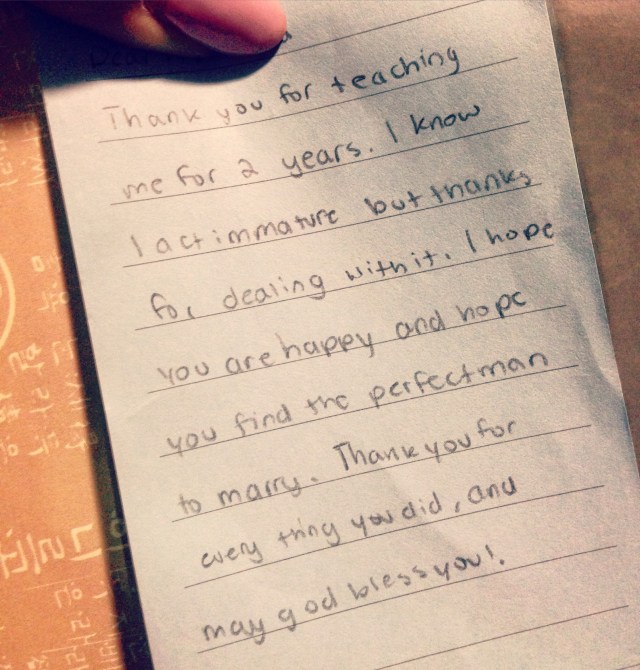 Thank you for teaching
me for 2 years. I know
I act immature but thanks
for dealing with it. I hope
you are happy and hope
you find the perfect man
to marry. Thank you for
every thing you did, and
may god bless you!.